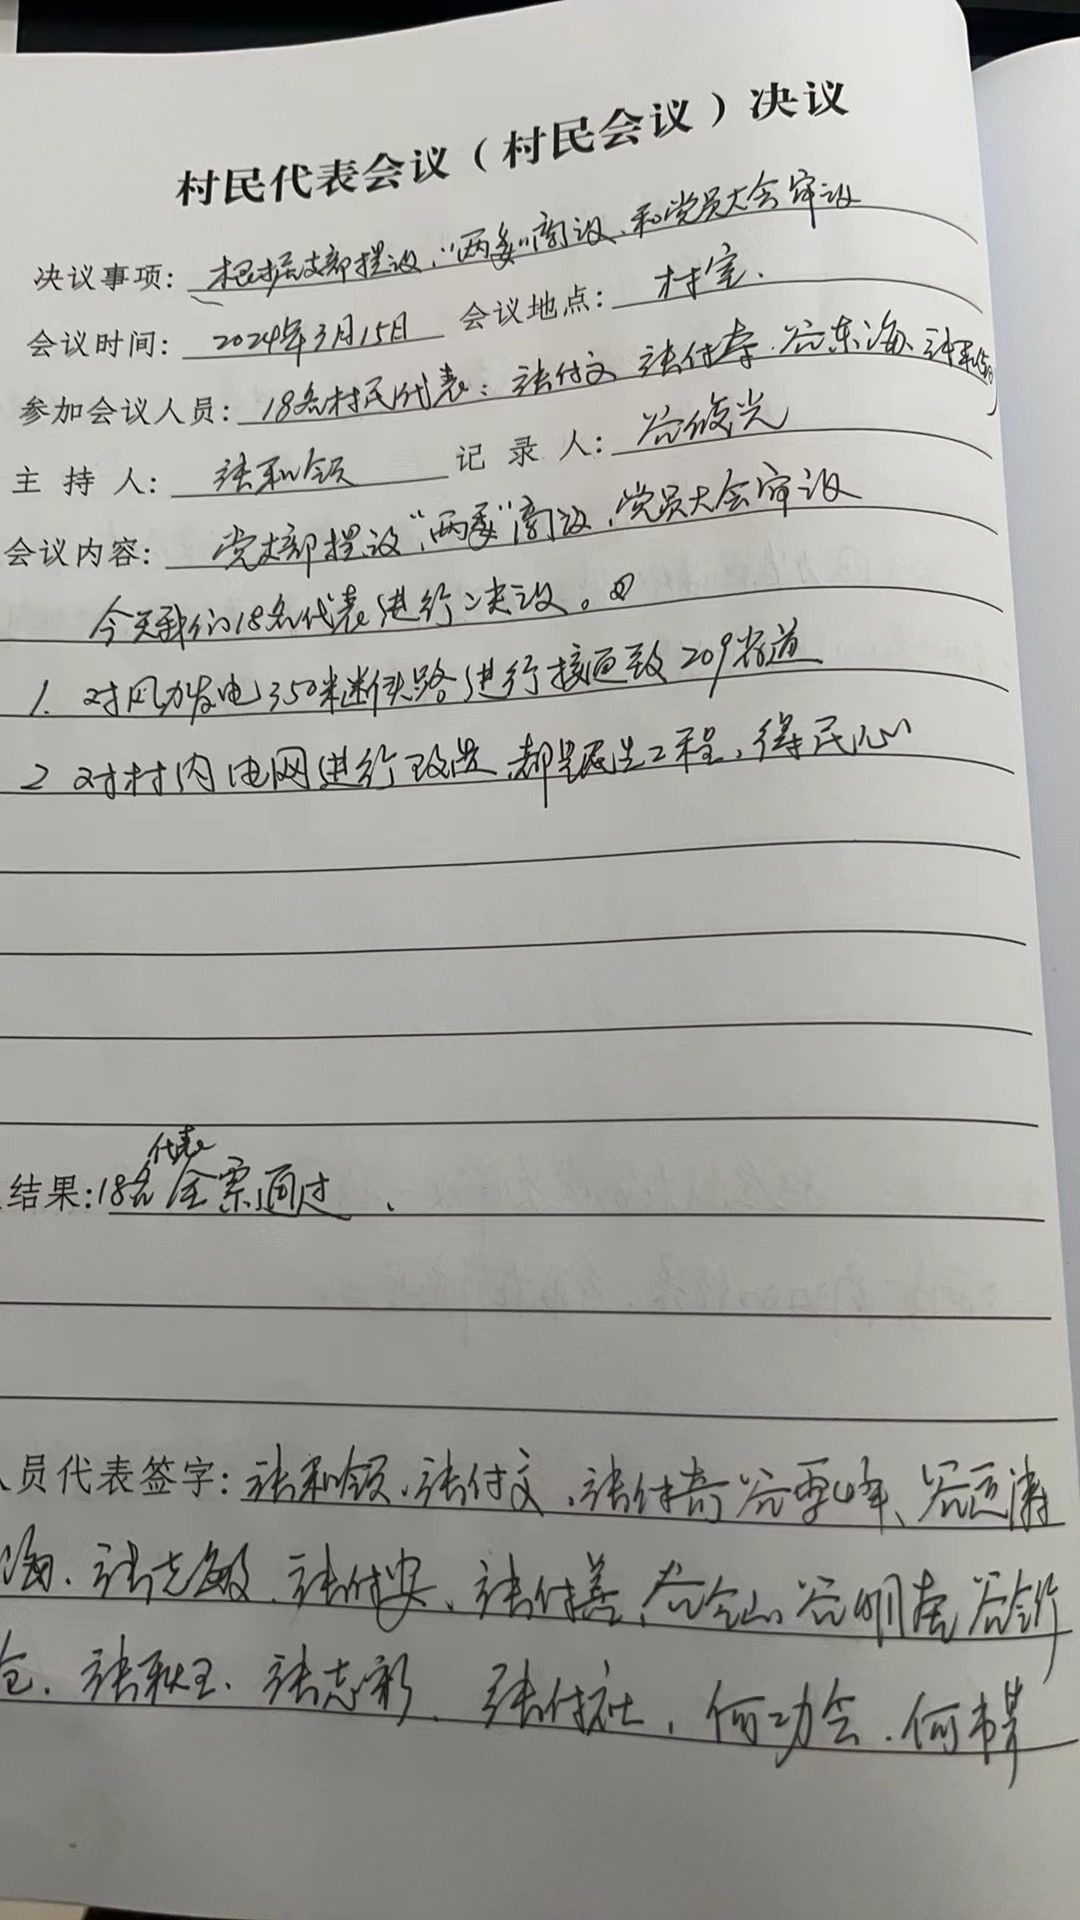 村民代表会议（村民会议）决议
决议事项：根据支部提议，“两委”商议，和党员大会审议
会议时间：2024年3月15日 会议地点：村室．
参加会议人员：18名村民代表：张付文 张付奇．谷东海、
主 持 人：张和领 记 录 人：谷俊光
会议内容：党支部提议，“两委”商议，党员大会审议
今天我们18名代表进行决议。
1. 对风力发电350米断头路进行接通致209省道
2 对村内电网进行改造，都是民生工程，得民心
代表
结果：18名全票通过．
人员代表签字：张和领、张付文、张付奇 谷雷峰、谷
海、张志敏、张付安、张付善、谷金山 谷明在 谷
仓、张秋玉、张志彩、张付社，何功会．何